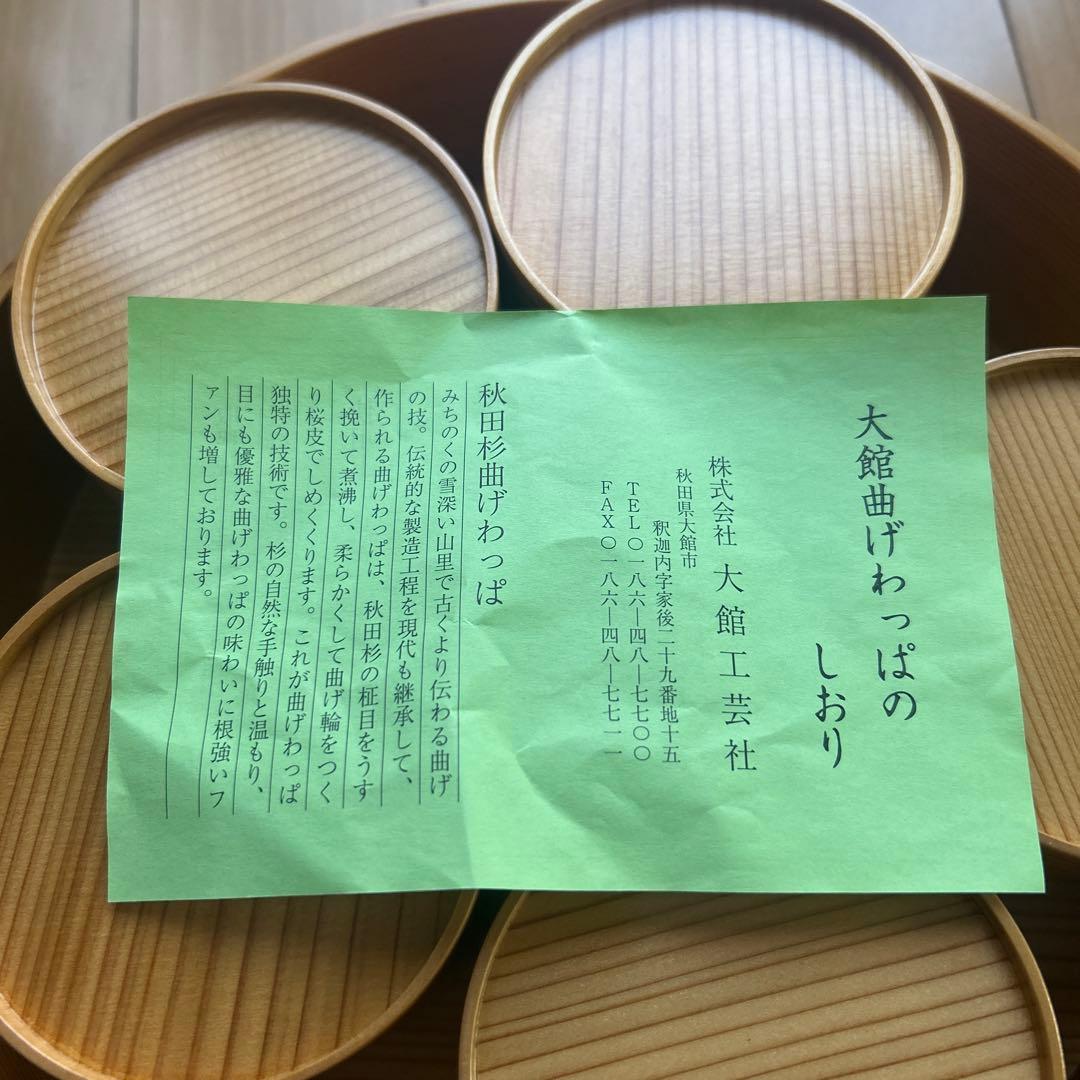 大館曲げわっぱの
しおり
株式会社 大館工芸社
秋田県大館市
釈迦内字家後二十九番地十五
TEL〇一八六―四八―七七〇〇
FAX〇一八六―四八―七七一一
秋田杉曲げわっぱ
みちのくの雪深い山里で古くより伝わる曲げ
の技。伝統的な製造工程を現代も継承して、
作られる曲げわっぱは、秋田杉の柾目をうす
く挽いて煮沸し、柔らかくして曲げ輪をつく
り桜皮でしめくくります。これが曲げわっぱ
独特の技術です。杉の自然な手触りと温もり、
目にも優雅な曲げわっぱの味わいに根強いフ
ァンも増しております。